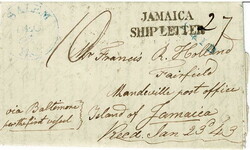 SALEM
JAMAICA
SHIP LETTER
27
Mr Francis R. Holland
Fairfield
Mandeville post office
Island of Jamaica
Recd. Jan 23d 43
via Baltimore
per the first vessel